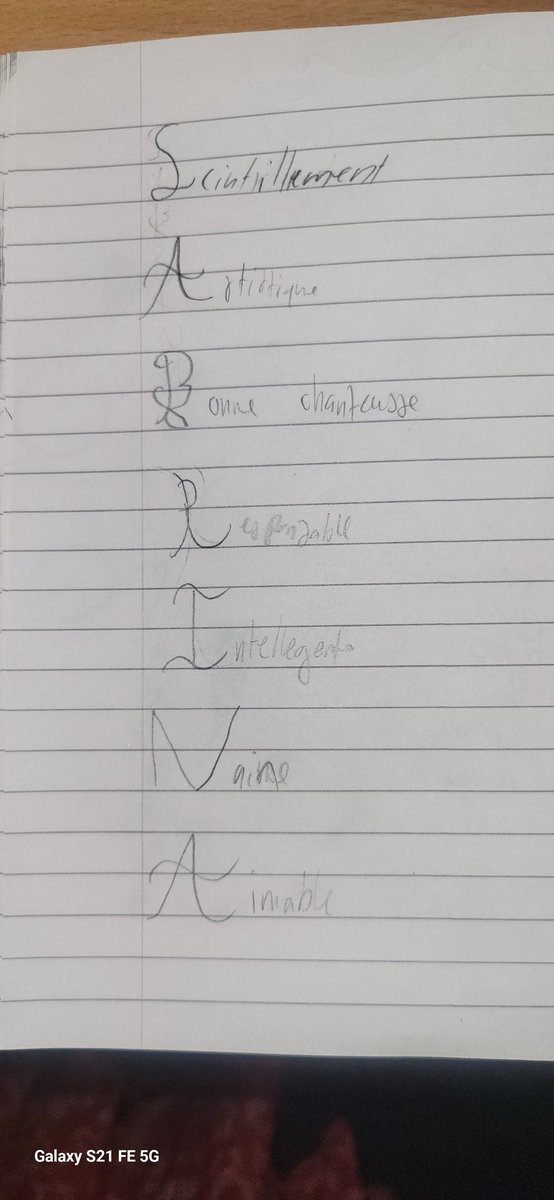 Scintillement
Artistique
Bonne chanteusse
Responsable
Intellegente
Naime
Aimable
Galaxy S21 FE 5G